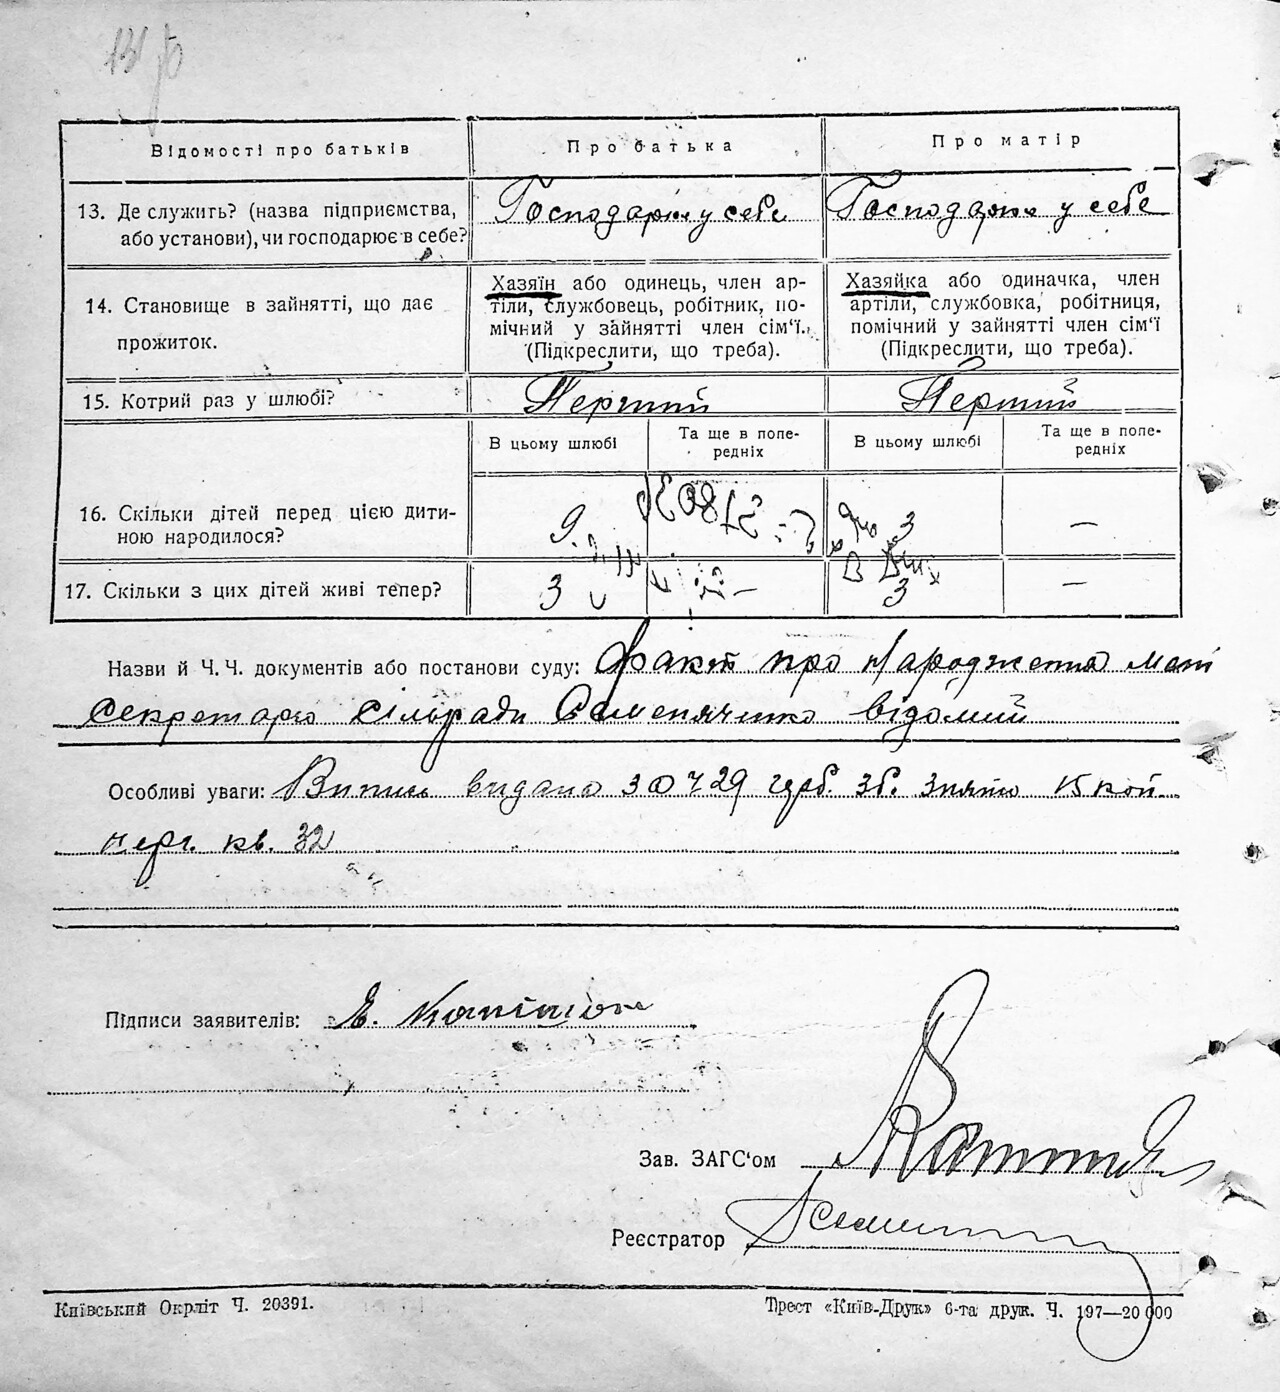 Відомості про батьків
Про батька
Про матір
13. Де служить? (назва підприємства,
або установи), чи господарює в себе?
Господарює у себе
Господарює у себе
14. Становище в зайнятті, що дає
прожиток.
Хазяїн або одинець, член ар-
тіли, службовець, робітник, по-
мічний у зайнятті член сім'ї.
(Підкреслити, що треба).
Хазяйка або одиначка, член
артіли, службовка, робітниця,
помічний у зайнятті член сім'ї
(Підкреслити, що треба).
15. Котрий раз у шлюбі?
Перший
Перший
В цьому шлюбі
Та ще в попе-
редніх
В цьому шлюбі
Та ще в попе-
редніх
16. Скільки дітей перед цією дити-
ною народилося?
3
—
17. Скільки з цих дітей живі тепер?
3
—
3
—
Назви й Ч.Ч. документів або постанови суду: Факт про народження мені
секретарю сільради відомий
Особливі уваги: Випись видано 30 7 29 зб. знято 15 коп
кв. 32
Підписи заявителів:
Зав. ЗАГС'ом
Реєстратор
Київський Окрліт Ч. 20391.
Трест «Київ-Друк» 6-та друк. Ч. 197—20 000